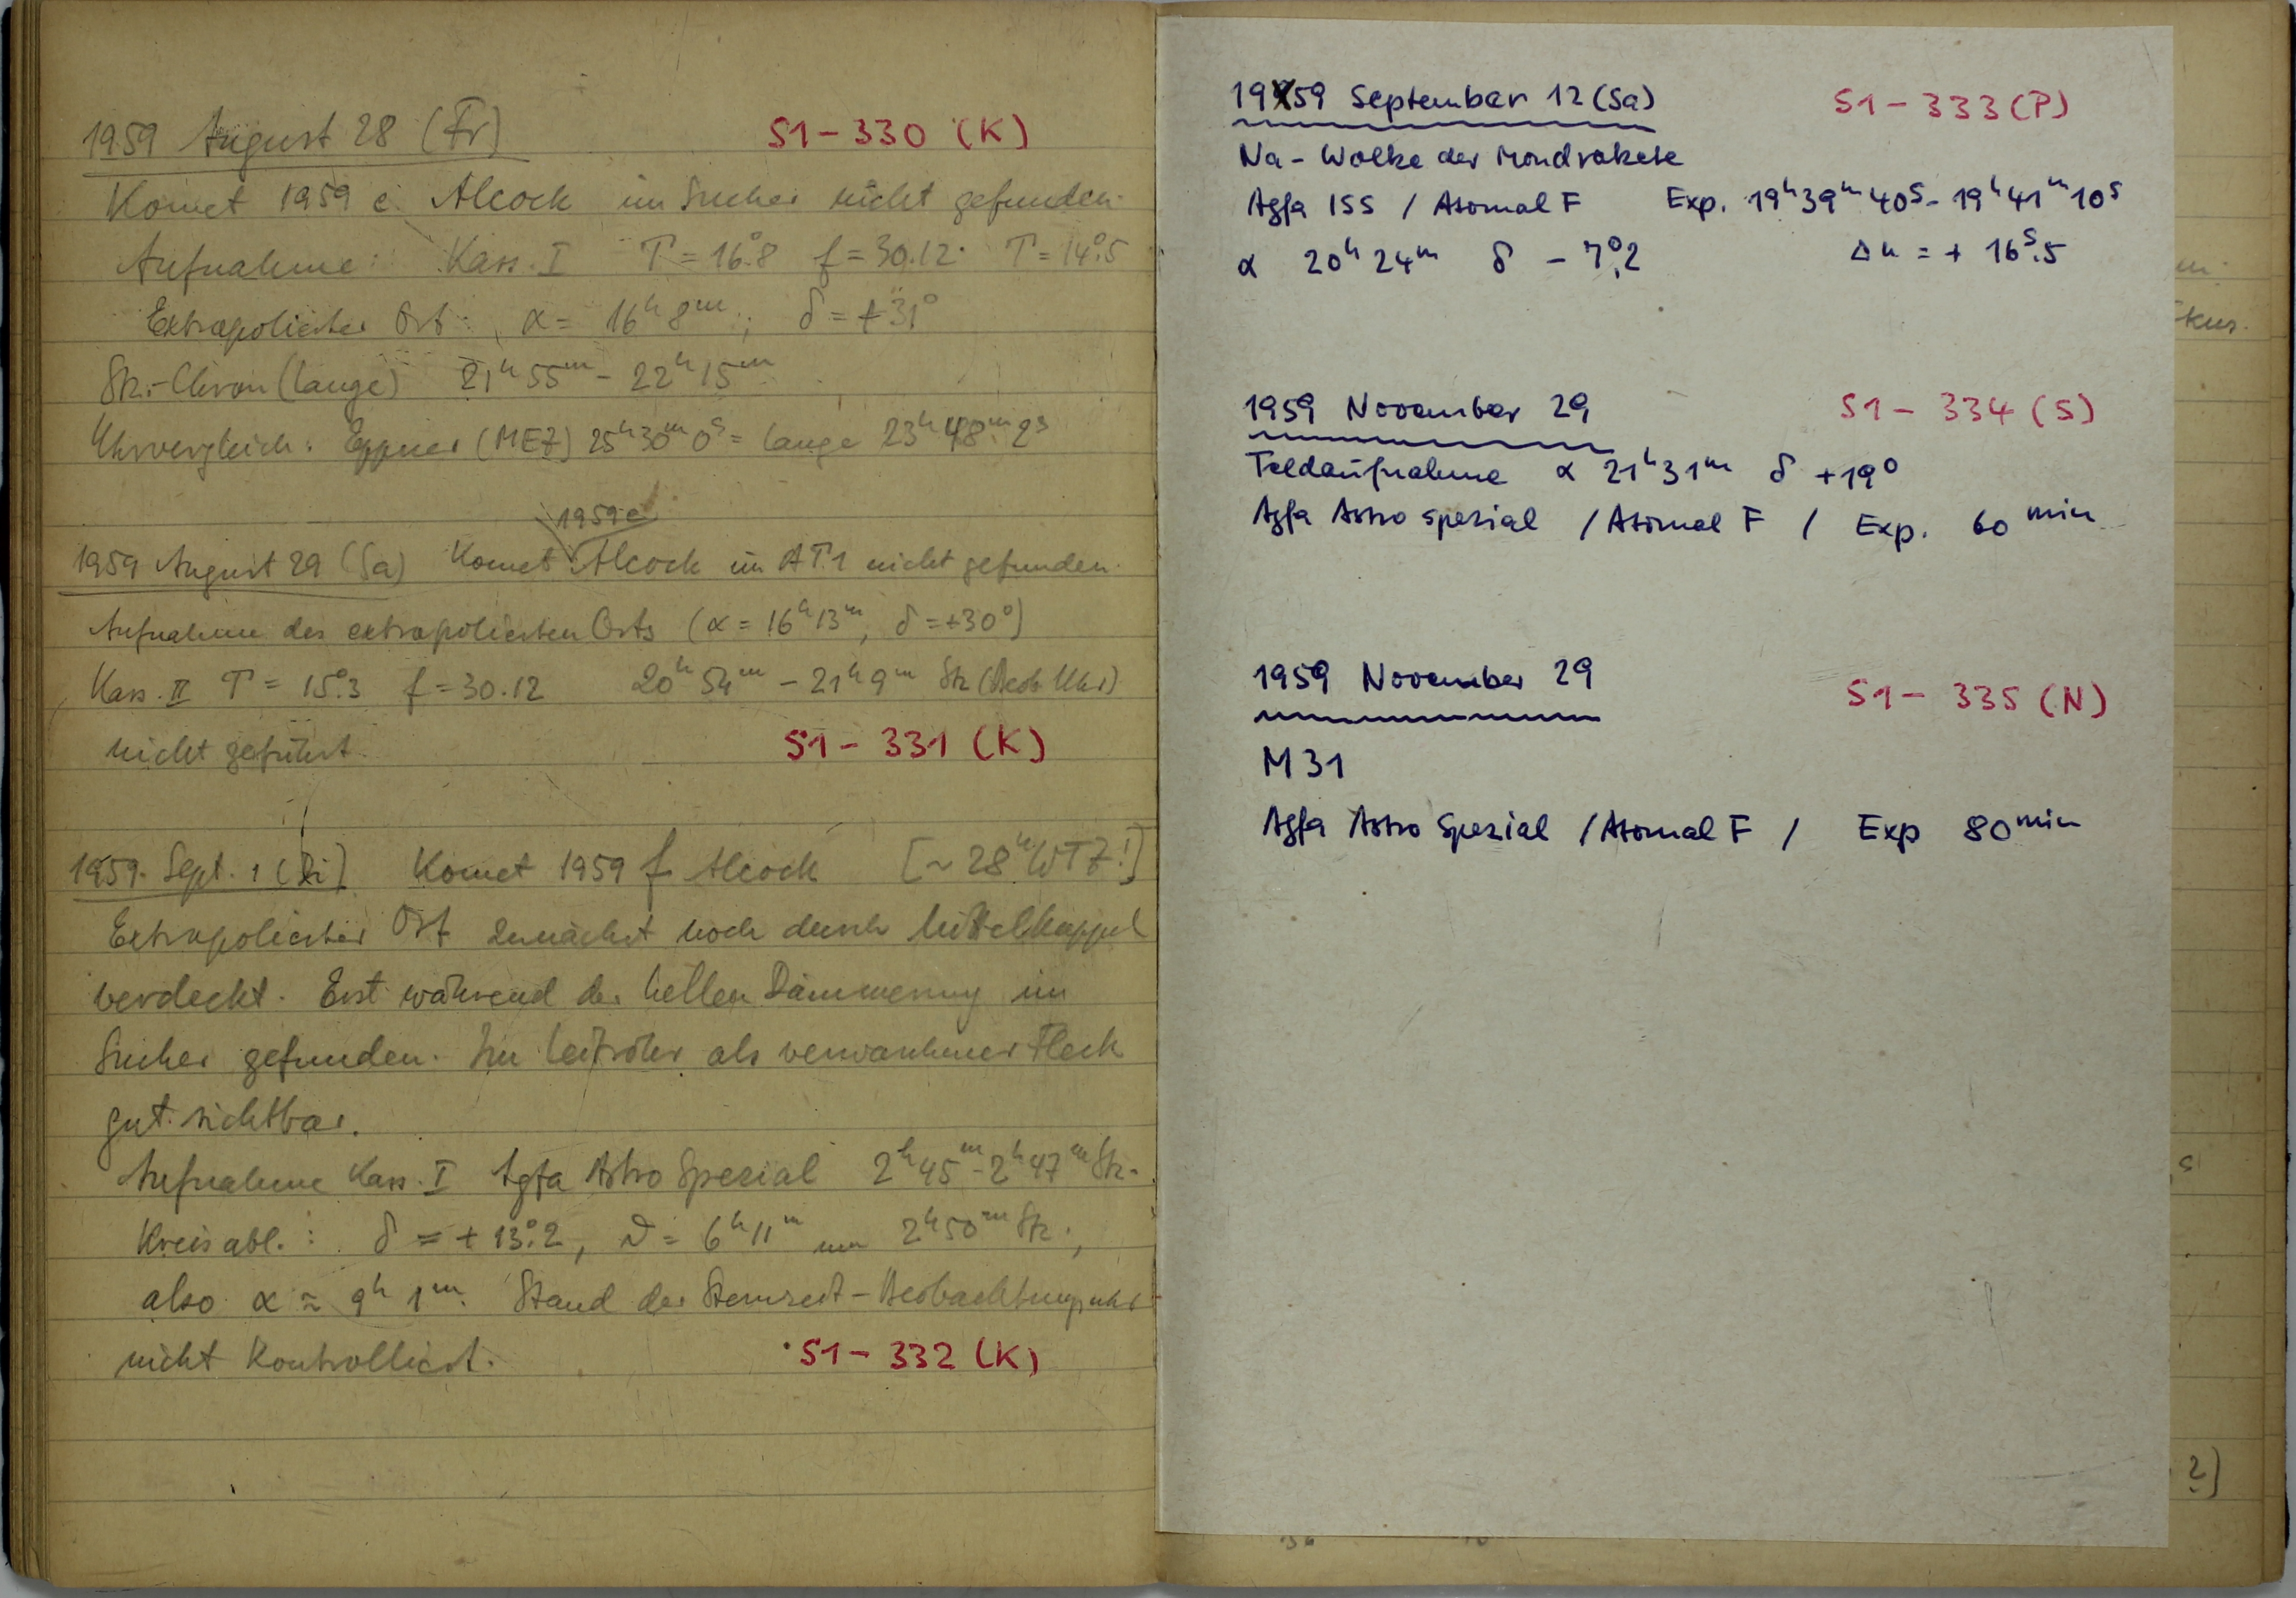 1959 August 28 (Fr) S1-330 (K)
Komet 1959 e Alcock im Sucher nicht gefunden.
Aufnahme: Kass. I T = 16°.8 f = 30.12. T = 14°.5
Extrapolierter Ort: α = 16ʰ 8ᵐ; δ = +31°
Stz.-Chron (Lange) 21ʰ55ᵐ - 22ʰ15ᵐ
Uhrvergleich: Eppner (MEZ) 25ʰ30ᵐ0ˢ = Lange 23ʰ48ᵐ2ˢ
1959e
1959 August 29 (Sa) Komet Alcock im AT1 nicht gefunden.
Aufnahme des extrapolierten Orts (α = 16ʰ13ᵐ, δ = +30°)
Kass. II T = 15°.3 f = 30.12 20ʰ54ᵐ - 21ʰ9ᵐ Stz (Beob. Uhr)
nicht geführt S1-331 (K)
1959 Sept. 1 (Di) Komet 1959 f Alcock [~28ʰ WTZ!]
Extrapolierter Ort zunächst noch durch Mittelkuppel
verdeckt. Erst während der hellen Dämmerung im
Sucher gefunden. Im Leitrohr als verwaschener Fleck
gut sichtbar.
Aufnahme Kass. I Agfa Astro Spezial 2ʰ45ᵐ - 2ʰ47ᵐ Stz.
Kreisabl.: δ = +13°.2, ϑ = 6ʰ11ᵐ um 2ʰ50ᵐ Stz.,
also α ≈ 9ʰ 1ᵐ. Stand der Sternzeit-Beobachtungsuhr
nicht kontrolliert. S1-332 (K)
1959 September 12 (Sa) S1-333 (P)
Na-Wolke der Mondrakete
Agfa ISS / Atomal F Exp. 19ʰ39ᵐ40ˢ - 19ʰ41ᵐ10ˢ
α 20ʰ24ᵐ δ -7°.2 Δu = +16ˢ.5
1959 November 29 S1-334 (S)
Feldaufnahme α 21ʰ31ᵐ δ +19°
Agfa Astro spezial / Atomal F / Exp. 60 min
1959 November 29 S1-335 (N)
M 31
Agfa Astro Spezial / Atomal F / Exp 80 min
kus.
2)